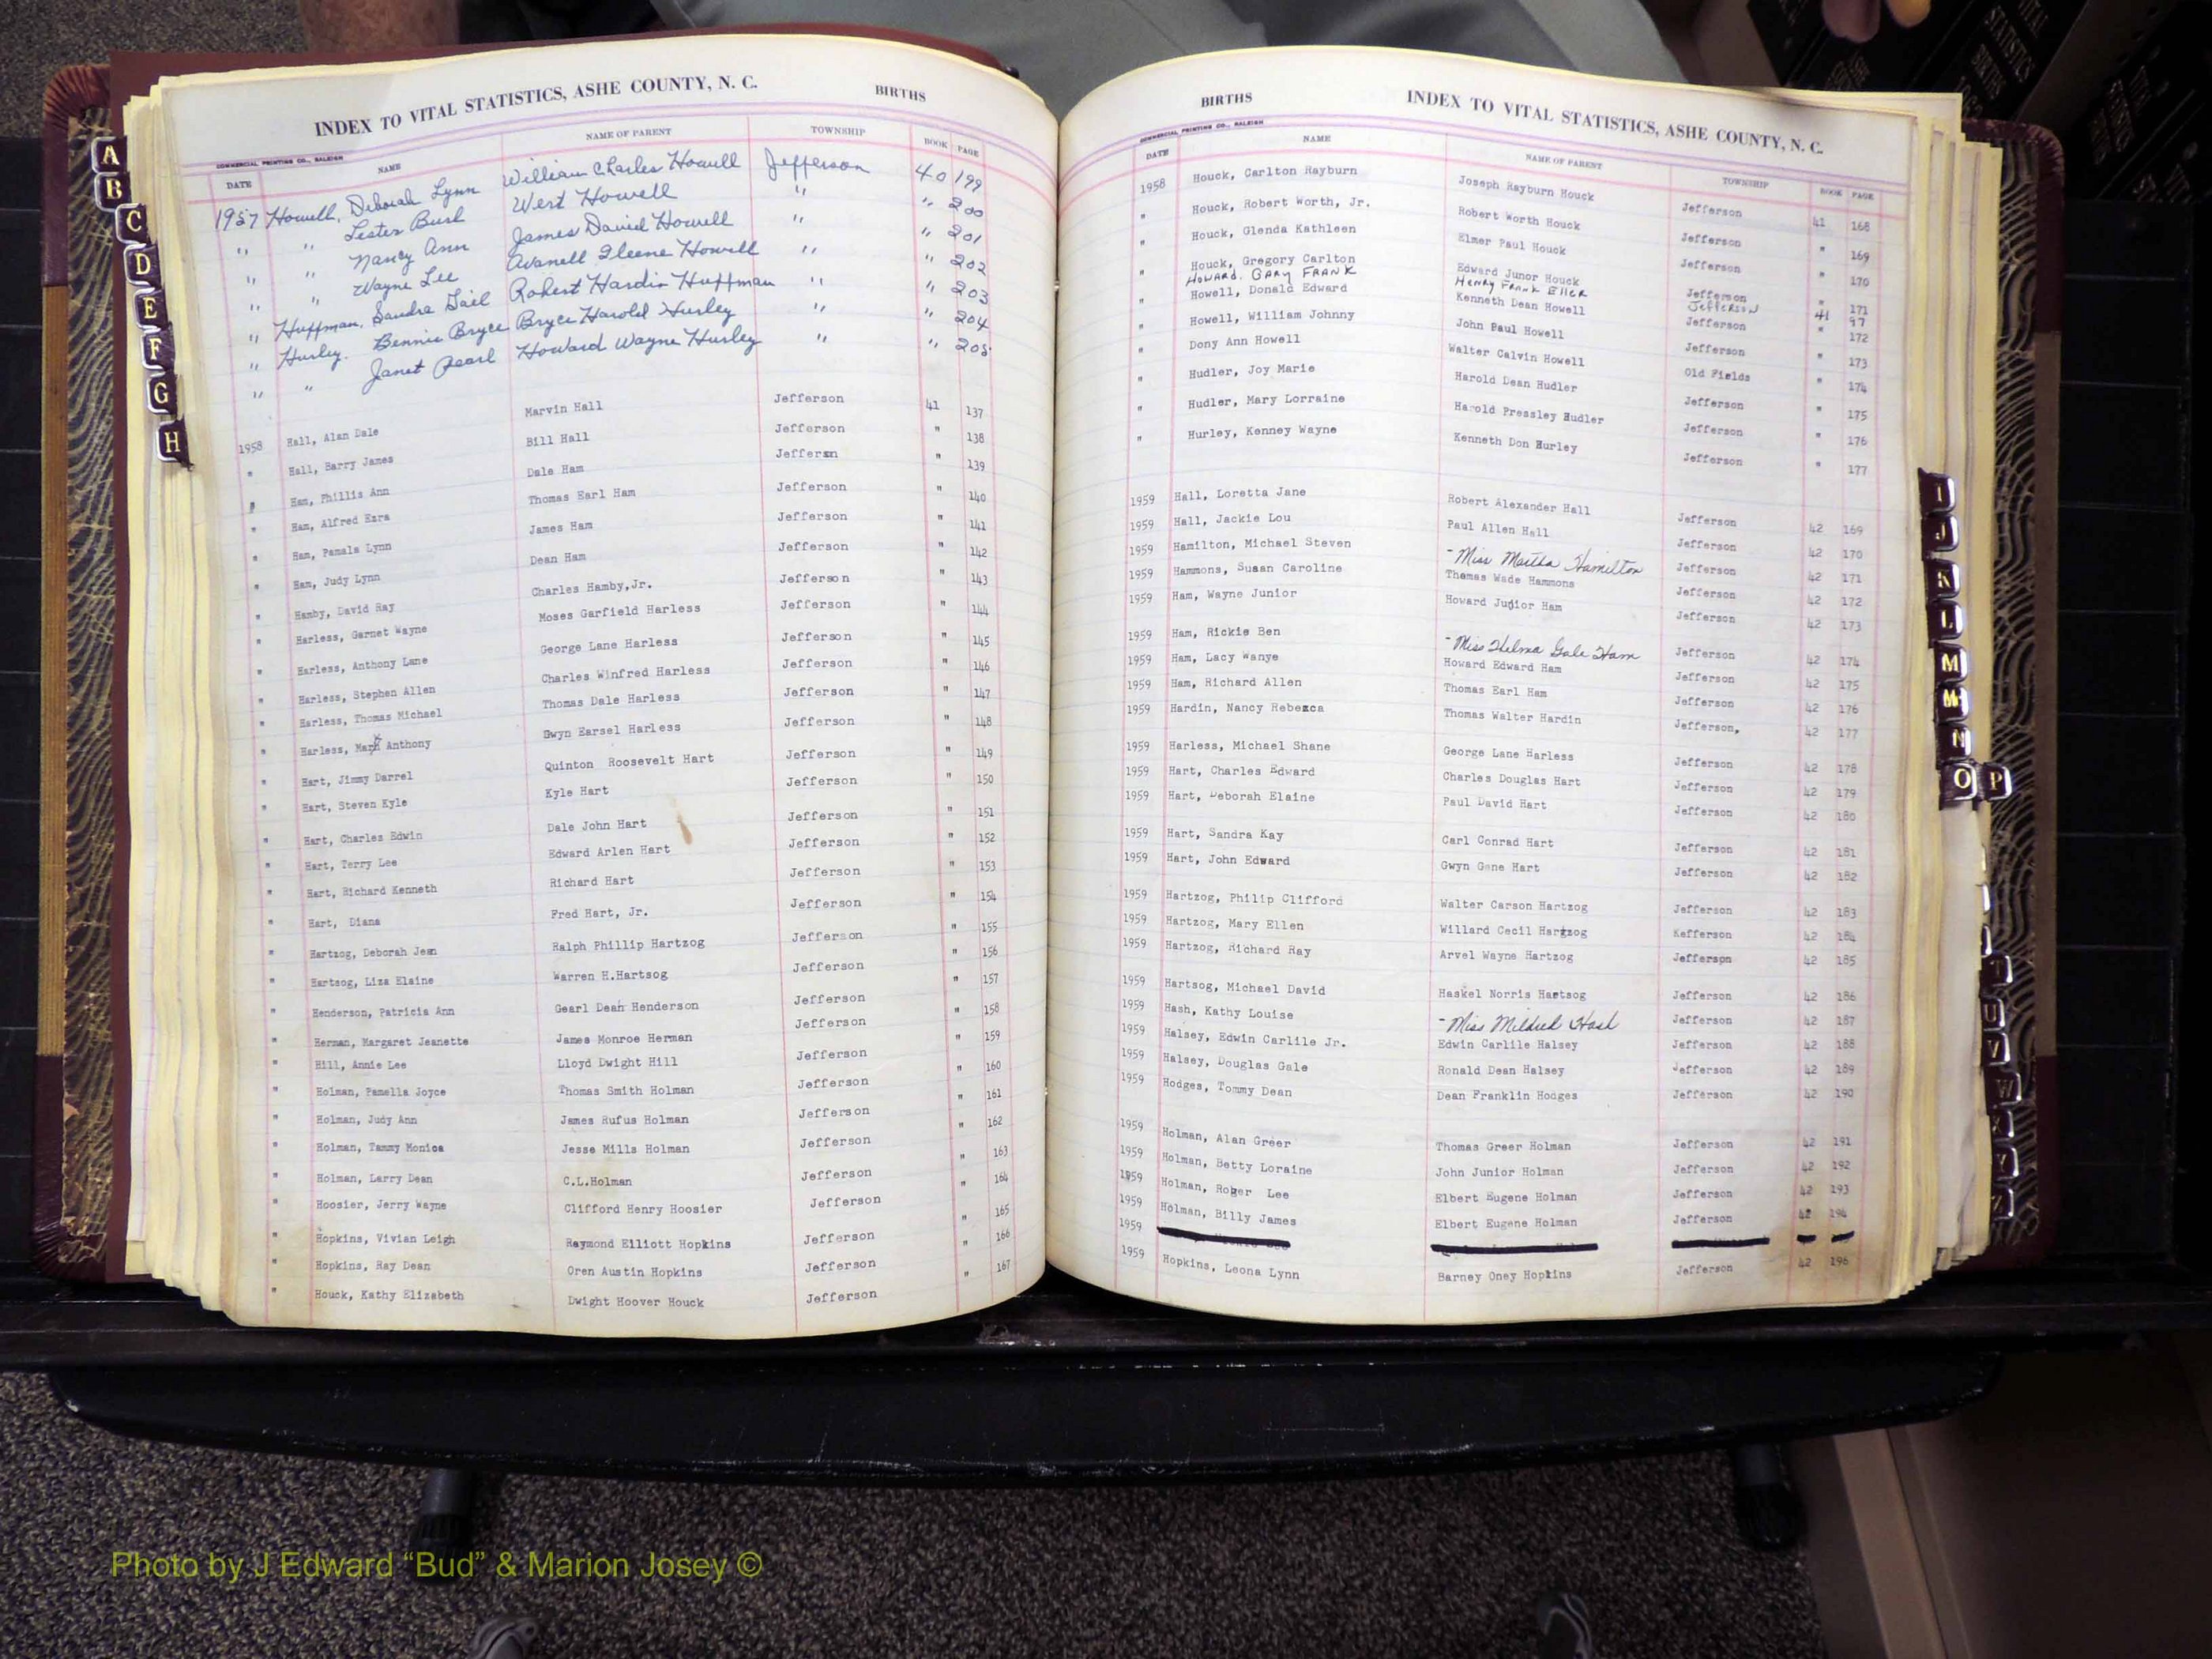 INDEX TO VITAL STATISTICS, ASHE COUNTY, N. C. BIRTHS
COMMERCIAL PRINTING CO., RALEIGH
DATE NAME NAME OF PARENT TOWNSHIP BOOK PAGE
1957 Howell, Deborah Lynn William Charles Howell Jefferson 40 199
" " Lester Bush West Howell " " 200
" " Nancy Ann James David Howell " " 201
" " Wayne Lee Avanell Ileene Howell " " 202
" Huffman, Sandra Gail Robert Hardin Huffman " " 203
" Hurley. Bennie Bryce Bryce Harold Hurley " " 204
" " Janet Pearl Howard Wayne Hurley " " 205
1958 Hall, Alan Dale Marvin Hall Jefferson 41 137
" Hall, Barry James Bill Hall Jefferson " 138
" Ham, Phillis Ann Dale Ham Jeffersn " 139
" Ham, Alfred Ezra Thomas Earl Ham Jefferson " 140
" Ham, Pamala Lynn James Ham Jefferson " 141
" Ham, Judy Lynn Dean Ham Jefferson " 142
" Hamby, David Ray Charles Hamby,Jr. Jefferson " 143
" Harless, Garnet Wayne Moses Garfield Harless Jefferson " 144
" Harless, Anthony Lane George Lane Harless Jefferson " 145
" Harless, Stephen Allen Charles Winfred Harless Jefferson " 146
" Harless, Thomas Michael Thomas Dale Harless Jefferson " 147
" Harless, Mark Anthony Gwyn Earsel Harless Jefferson " 148
" Hart, Jimmy Darrel Quinton Roosevelt Hart Jefferson " 149
" Hart, Steven Kyle Kyle Hart Jefferson " 150
" Hart, Charles Edwin Dale John Hart Jefferson " 151
" Hart, Terry Lee Edward Arlen Hart Jefferson " 152
" Hart, Richard Kenneth Richard Hart Jefferson " 153
" Hart, Diana Fred Hart, Jr. Jefferson " 154
" Hartzog, Deborah Jean Ralph Phillip Hartzog Jefferson " 155
" Hartsog, Liza Elaine Warren H.Hartsog Jefferson " 156
" Henderson, Patricia Ann Gearl Dean Henderson Jefferson " 157
" Herman, Margaret Jeanette James Monroe Herman Jefferson " 158
" Hill, Annie Lee Lloyd Dwight Hill Jefferson " 159
" Holman, Pamella Joyce Thomas Smith Holman Jefferson " 160
" Holman, Judy Ann James Rufus Holman Jefferson " 161
" Holman, Tammy Monica Jesse Mills Holman Jefferson " 162
" Holman, Larry Dean C.L.Holman Jefferson " 163
" Hoosier, Jerry Wayne Clifford Henry Hoosier Jefferson " 164
" Hopkins, Vivian Leigh Raymond Elliott Hopkins Jefferson " 165
" Hopkins, Ray Dean Oren Austin Hopkins Jefferson " 166
" Houck, Kathy Elizabeth Dwight Hoover Houck Jefferson " 167
BIRTHS INDEX TO VITAL STATISTICS, ASHE COUNTY, N. C.
COMMERCIAL PRINTING CO., RALEIGH
DATE NAME NAME OF PARENT TOWNSHIP BOOK PAGE
1958 Houck, Carlton Rayburn Joseph Rayburn Houck Jefferson 41 168
" Houck, Robert Worth, Jr. Robert Worth Houck Jefferson " 169
" Houck, Glenda Kathleen Elmer Paul Houck Jefferson " 170
" Houck, Gregory Carlton Edward Junor Houck Jefferson " 171
HOWARD. GARY FRANK HENRY FRANK ELLER JEFFERSON 41 97
" Howell, Donald Edward Kenneth Dean Howell Jefferson " 172
" Howell, William Johnny John Paul Howell Jefferson " 173
" Dony Ann Howell Walter Calvin Howell Old Fields " 174
" Hudler, Joy Marie Harold Dean Hudler Jefferson " 175
" Hudler, Mary Lorraine Harold Pressley Hudler Jefferson " 176
" Hurley, Kenney Wayne Kenneth Don Hurley Jefferson " 177
1959 Hall, Loretta Jane Robert Alexander Hall Jefferson 42 169
1959 Hall, Jackie Lou Paul Allen Hall Jefferson 42 170
1959 Hamilton, Michael Steven - Miss Martha Hamilton Jefferson 42 171
1959 Hammons, Susan Caroline Thomas Wade Hammons Jefferson 42 172
1959 Ham, Wayne Junior Howard Junior Ham Jefferson 42 173
1959 Ham, Rickie Ben - Miss Thelma Gale Ham Jefferson 42 174
1959 Ham, Lacy Wanye Howard Edward Ham Jefferson 42 175
1959 Ham, Richard Allen Thomas Earl Ham Jefferson 42 176
1959 Hardin, Nancy Rebecca Thomas Walter Hardin Jefferson, 42 177
1959 Harless, Michael Shane George Lane Harless Jefferson 42 178
1959 Hart, Charles Edward Charles Douglas Hart Jefferson 42 179
1959 Hart, Deborah Elaine Paul David Hart Jefferson 42 180
1959 Hart, Sandra Kay Carl Conrad Hart Jefferson 42 181
1959 Hart, John Edward Gwyn Gene Hart Jefferson 42 182
1959 Hartzog, Philip Clifford Walter Carson Hartzog Jefferson 42 183
1959 Hartzog, Mary Ellen Willard Cecil Hartzog Kefferson 42 184
1959 Hartzog, Richard Ray Arvel Wayne Hartzog Jefferson 42 185
1959 Hartsog, Michael David Haskel Norris Hartsog Jefferson 42 186
1959 Hash, Kathy Louise - Miss Mildred Hash Jefferson 42 187
1959 Halsey, Edwin Carlile Jr. Edwin Carlile Halsey Jefferson 42 188
1959 Halsey, Douglas Gale Ronald Dean Halsey Jefferson 42 189
1959 Hodges, Tommy Dean Dean Franklin Hodges Jefferson 42 190
1959 Holman, Alan Greer Thomas Greer Holman Jefferson 42 191
1959 Holman, Betty Loraine John Junior Holman Jefferson 42 192
1959 Holman, Roger Lee Elbert Eugene Holman Jefferson 42 193
1959 Holman, Billy James Elbert Eugene Holman Jefferson 42 194
1959
1959 Hopkins, Leona Lynn Barney Oney Hopkins Jefferson 42 196
A
B
C
D
E
F
G
H
I
J
K
L
M
Mc
N
O P
T
U
V
W
X
Y
Z
VITAL STATISTICS
Photo by J Edward “Bud” & Marion Josey ©